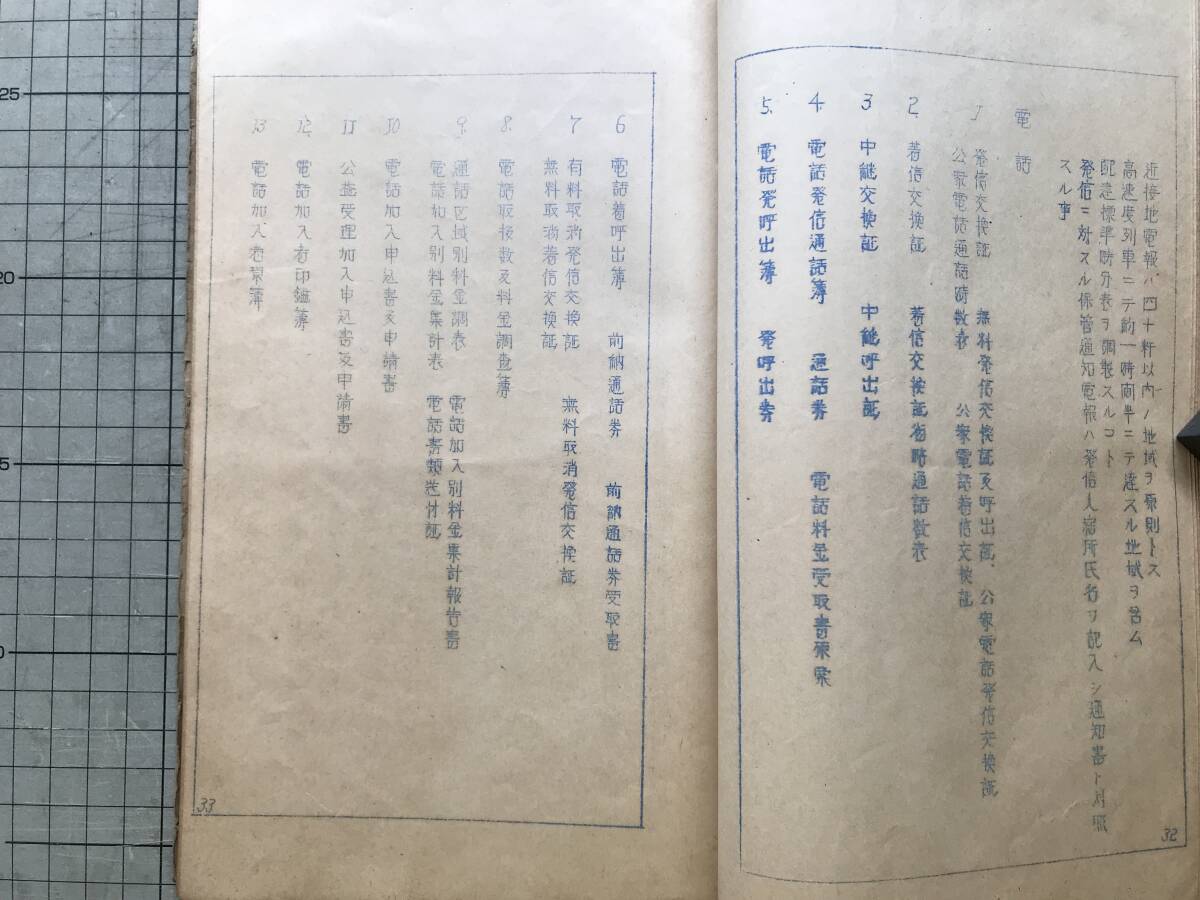 近接地電報ハ四十粁以内ノ地域ヲ原則トス
高速度列車ニテ約一時間半ニテ達スル地域ヲ含ム
配達標準時分表ヲ調製スルコト
発信ニ対スル保管通知電報ハ発信人宿所氏名ヲ記入シ通知書ト対照
スル事
電話
1 発信交換証 無料発信交換証及呼出証、公衆電話発信交換証
公衆電話通話時数表 公衆電話着信交換証
2. 着信交換証 着信交換証省略通話数表
3 中継交換証 中継呼出証
4 電話発信通話簿 通話券 電話料金受取書原票
5. 電話発呼出簿 発呼出券
32
6 電話着呼出簿 前納通話券 前納通話券受取書
7 有料取消発信交換証 無料取消発信交換証
無料取消着信交換証
8. 電話取扱数及料金調査簿
9. 通話区域別料金調表 電話加入別料金集計報告書
電話加入別料金集計表 電話書類送付証
10 電話加入申込書及申請書
11 公益受理加入申込書及申請書
12. 電話加入者印鑑簿
13 電話加入者原簿
33
25
20